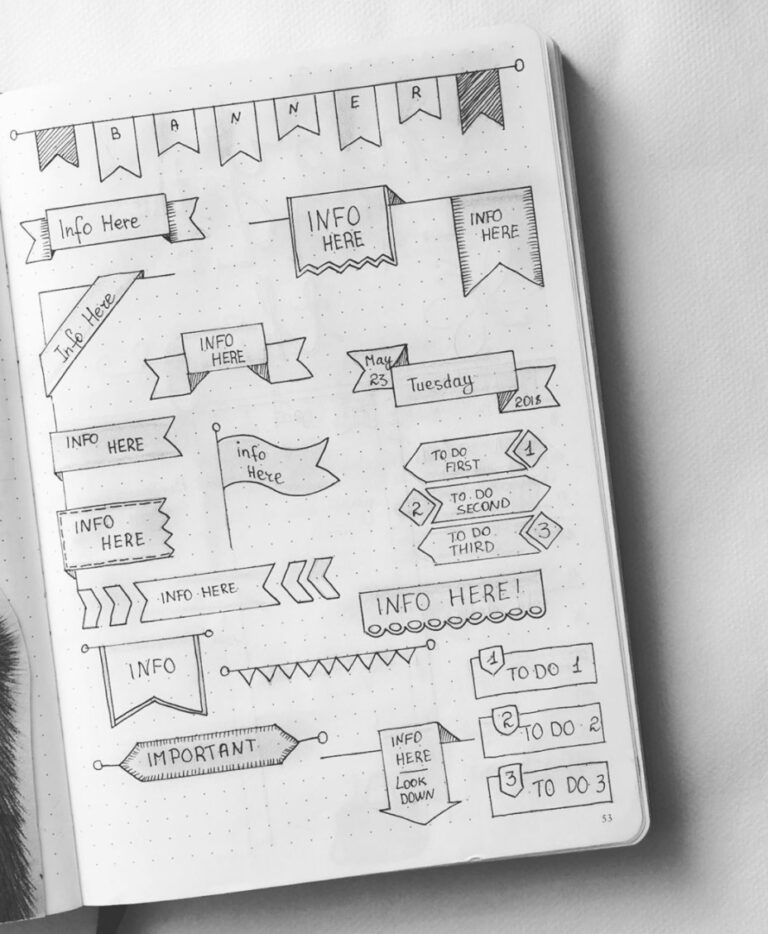 BANNER
Info Here
INFO
HERE
INFO
HERE
Info Here
INFO
HERE
May
23
Tuesday
2018
INFO HERE
info
Here
TO DO
FIRST
1
2
TO DO
SECOND
TO DO
THIRD
3
INFO
HERE
INFO HERE
INFO HERE!
INFO
1 TO DO 1
2 TO DO 2
IMPORTANT
INFO
HERE
LOOK
DOWN
3 TO DO 3
53